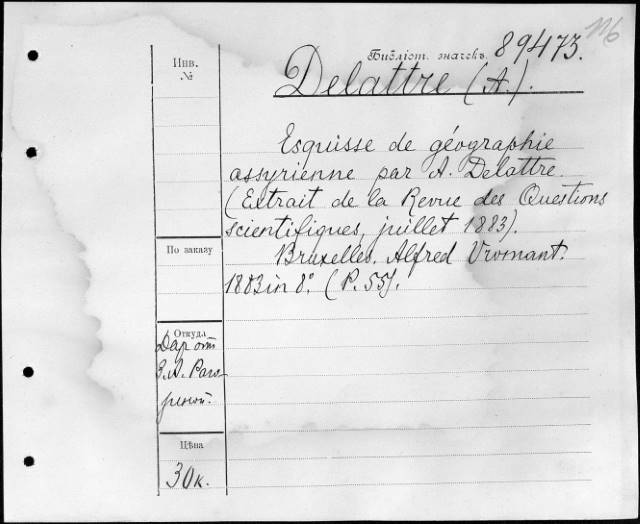 116
Библіот. значекъ. 89473.
Инв.
№
Delattre (A.).
Esquisse de géographie
assyrienne par A. Delattre.
(Extrait de la Revue des Questions
scientifiques, juillet 1883).
Bruxelles. Alfred Vromant.
1883 in 8°. (P. 55).
По заказу
Откуда
Даръ отъ
З. А. Раго-
Цѣна
30 к.